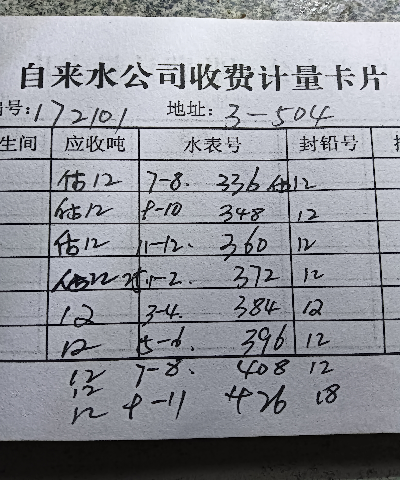 自来水公司收费计量卡片
编号:172101 地址: 3-504
生间 应收吨 水表号 封铅号
估12 7-8. 336 估12
估12 9-10 348 12
估12 11-12. 360 12
估12 1-2. 372 12
12 3-4. 384 12
12 5-6. 396 12
12 7-8. 408 12
12
12 9-11 426 18